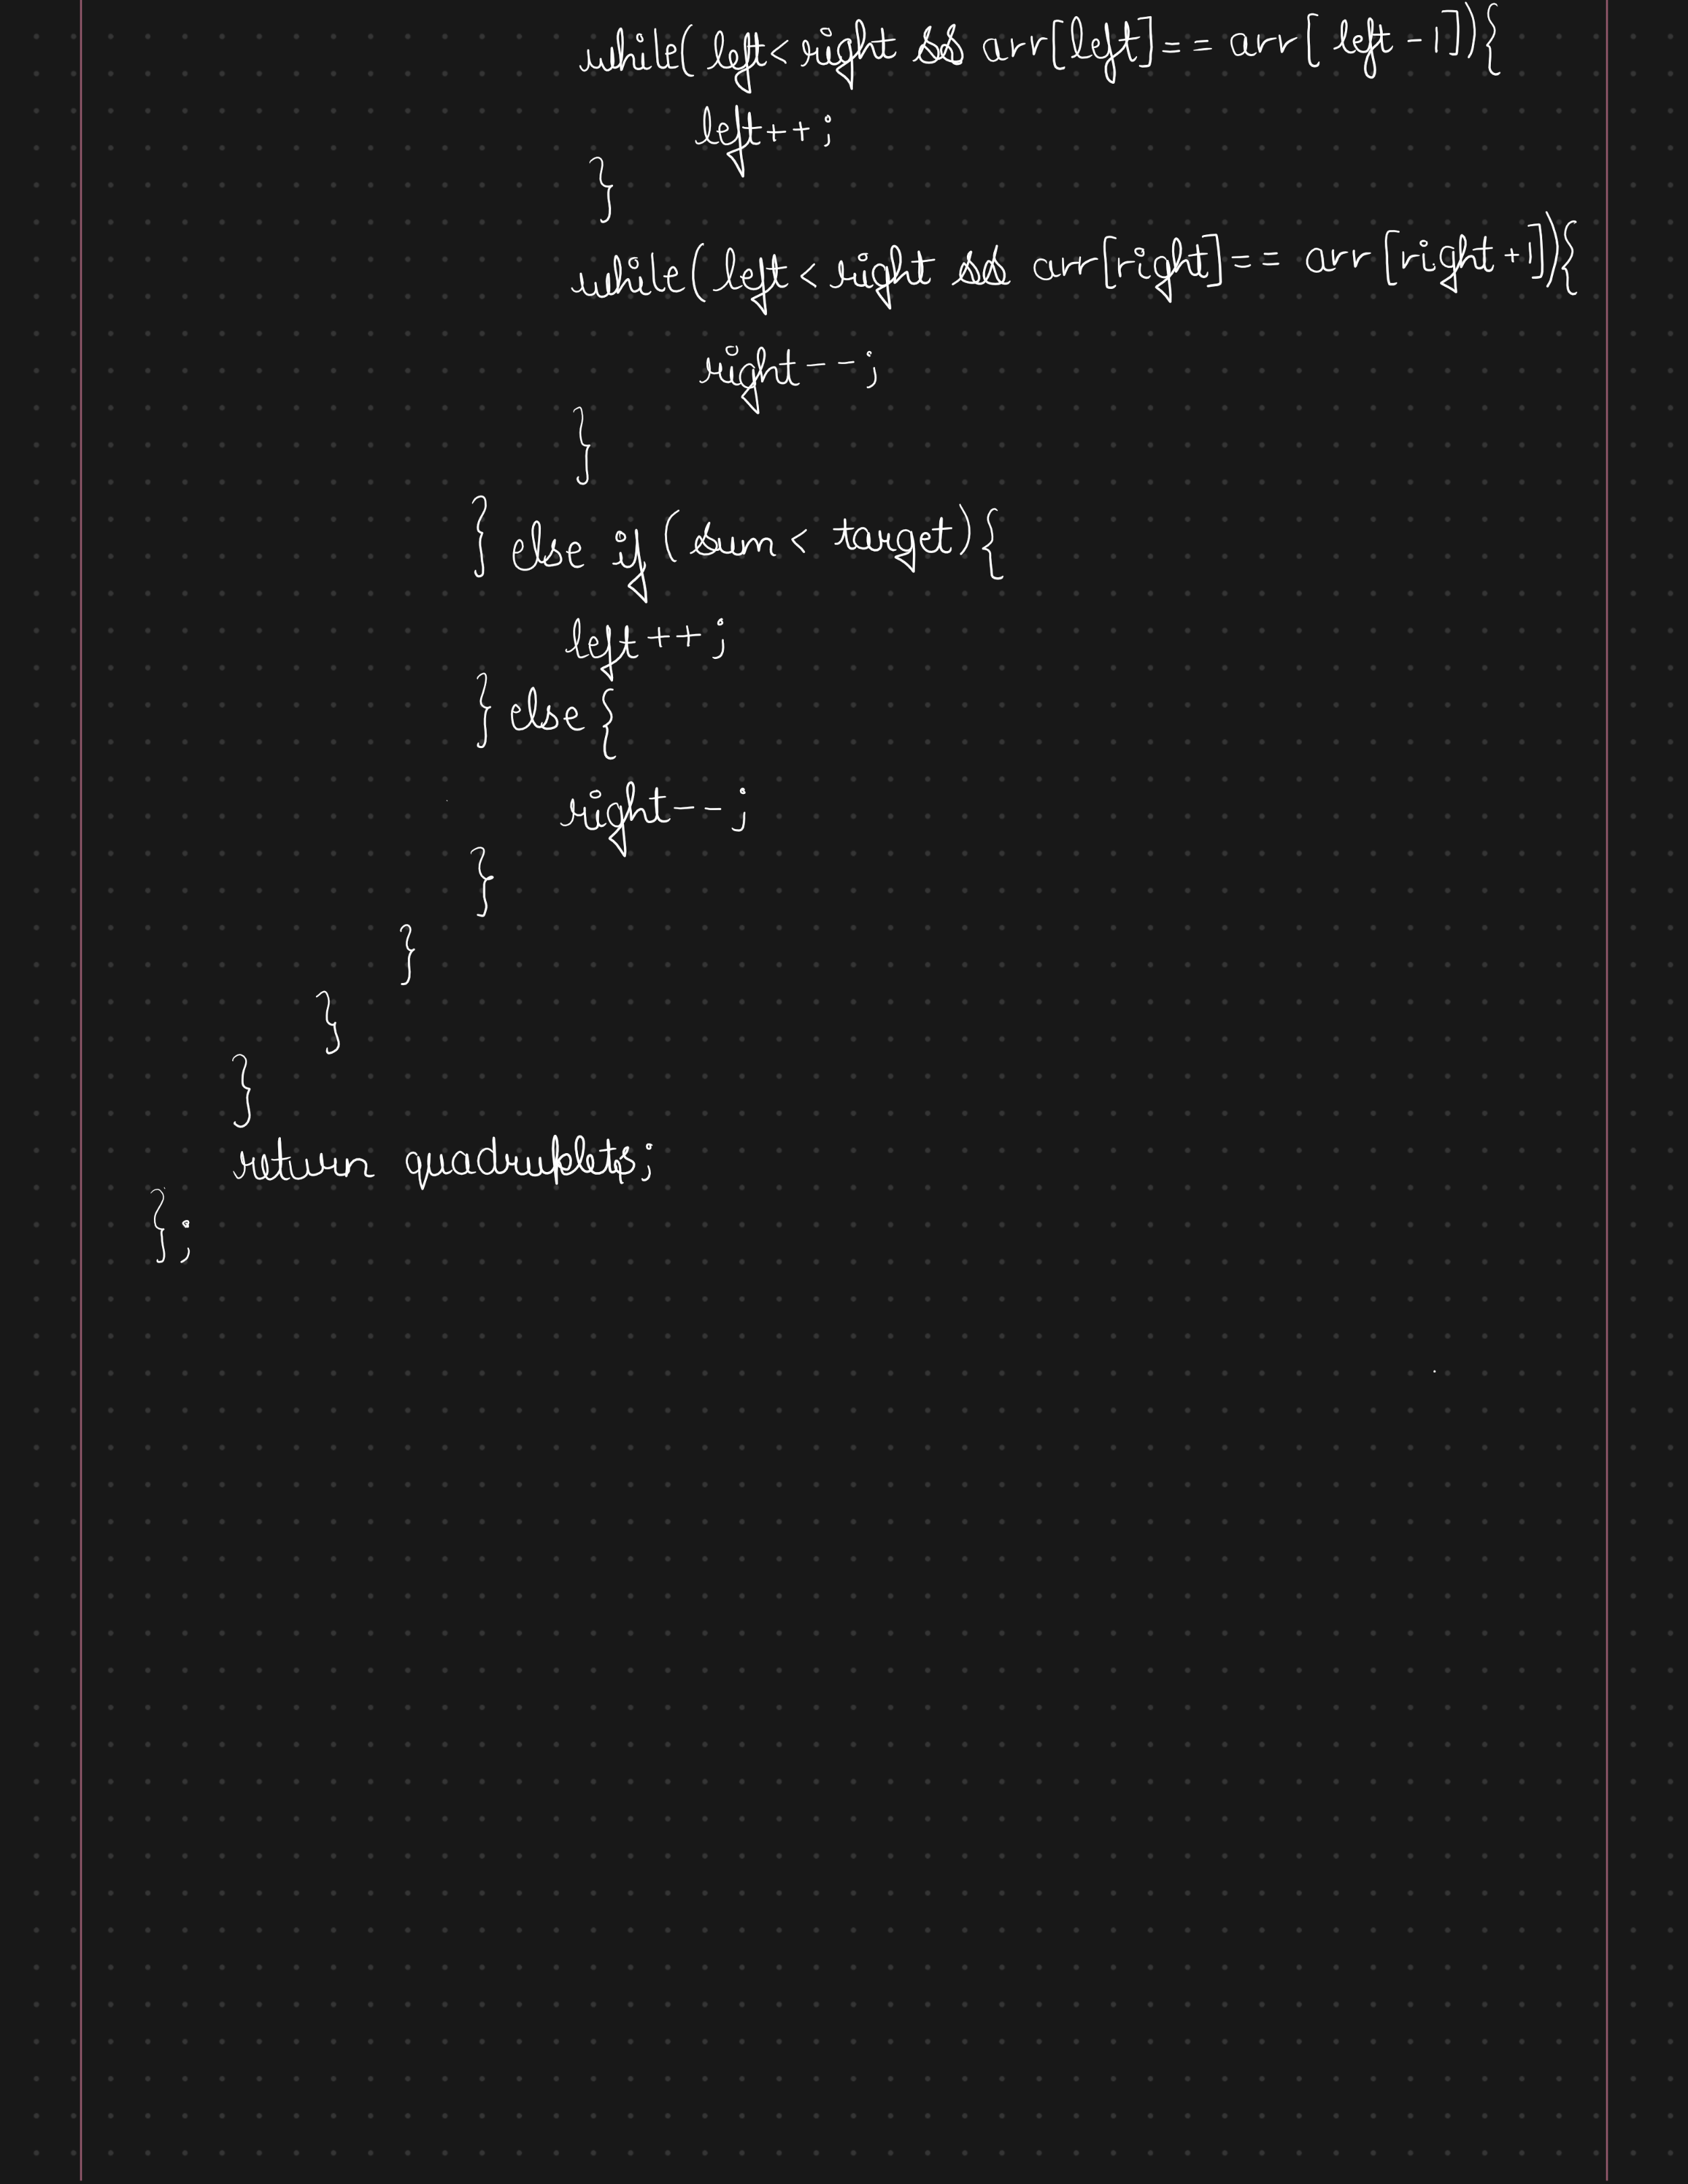 while(left<right && arr[left]==arr[left-1]){
left++;
}
while(left<right && arr[right]==arr[right+1]){
right--;
}
}else if(sum<target){
left++;
}else{
right--;
}
}
}
}
return quadruplets;
};